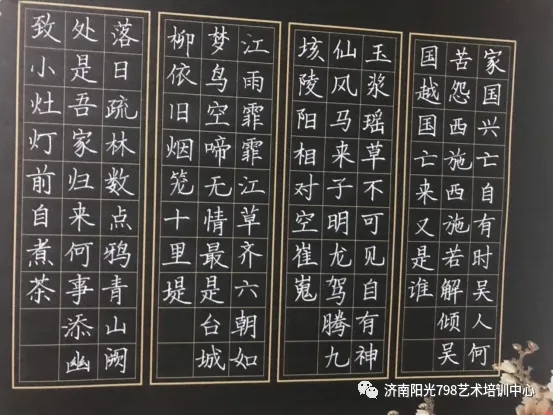 家国兴亡自有时吴人何
苦怨西施西施若解倾吴
国越国亡来又是谁
玉浆瑶草不可见自有神
仙风马来子明龙驾腾九
垓陵阳相对空崔嵬
江雨霏霏江草齐六朝如
梦鸟空啼无情最是台城
柳依旧烟笼十里堤
落日疏林数点鸦青山阙
处是吾家归来何事添幽
致小灶灯前自煮茶
济南阳光798艺术培训中心